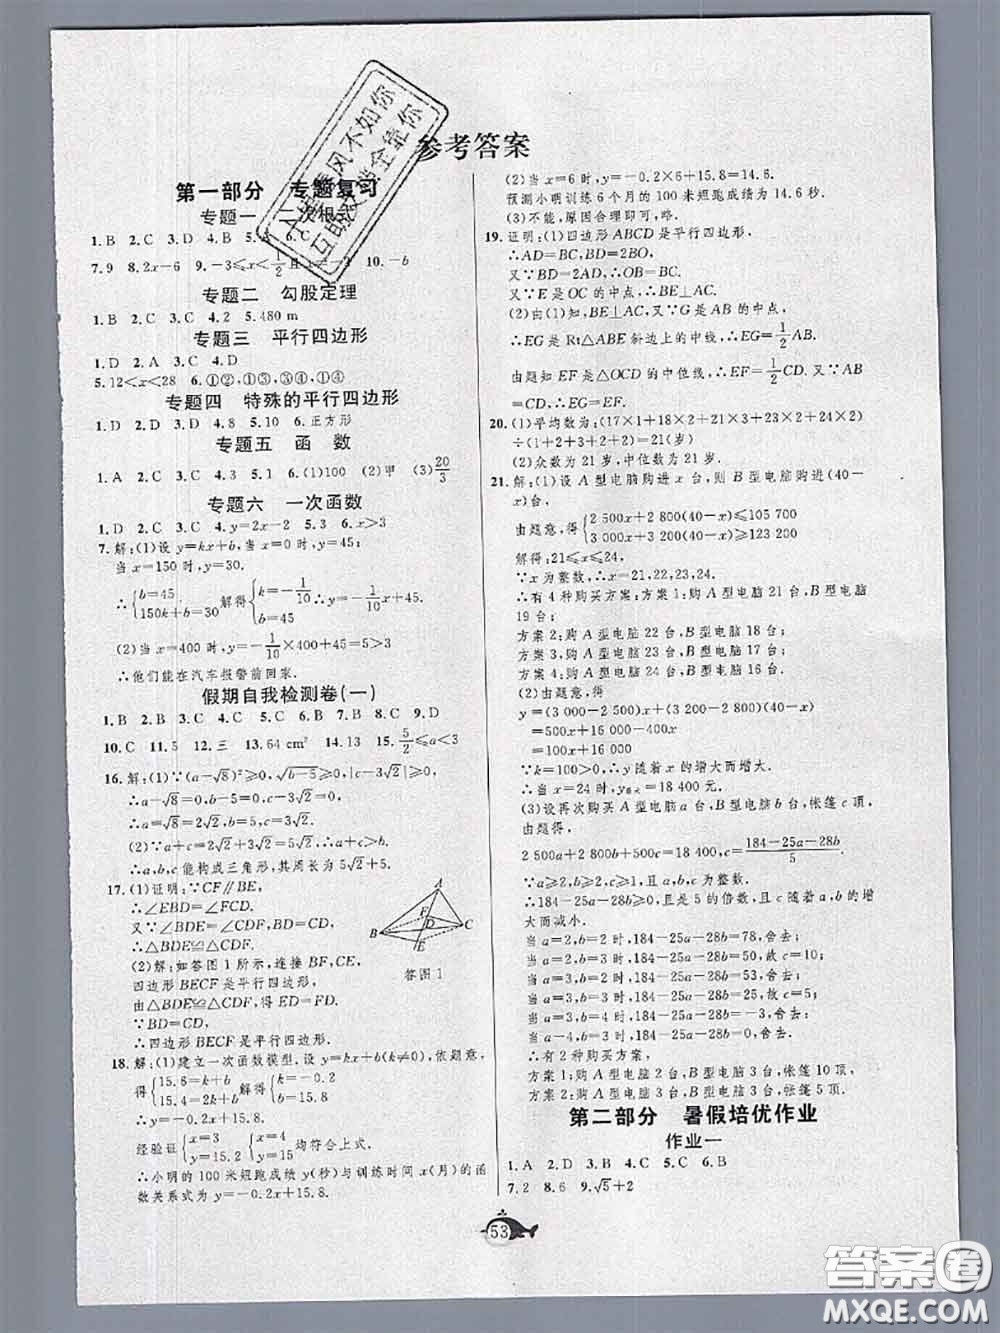 参考答案
第一部分 专题复习
专题一 二次根式
1.B 2.C 3.D 4.B 5. 6.C
7.9 8.2x-6 9.-3≤x<1/2 10.-b
专题二 勾股定理
1.B 2.C 3.C 4.2 5.480 m
专题三 平行四边形
1.D 2.A 3.C 4.D
5.12<x<28 6.①②,①③,③④,①④
专题四 特殊的平行四边形
1.D 2.D 3.B 4.8 5.10 6.正方形
专题五 函 数
1.A 2.C 3.C 4.3 5.1 6.(1)100 (2)甲 (3)20/3
专题六 一次函数
1.D 2.C 3.C 4.y=2x-2 5.3 6.x>3
7.解:(1)设 y=kx+b,当 x=0 时,y=45;
当 x=150 时,y=30.
∴{b=45 150k+b=30 解得{k=-1/10 b=45 ∴y=-1/10 x+45.
(2)当 x=400 时,y=-1/10×400+45=5>3
∴他们能在汽车报警前回家.
假期自我检测卷(一)
1.B 2.B 3.C 4.C 5.C 6.B 7.B 8.C 9.D
10.C 11.5 12.三 13.64 cm² 14.13 15.5/2≤a<3
16.解:(1)∵(a-√8)²≥0,√(b-5)≥0,|c-3√2|≥0,
∴a-√8=0,b-5=0,c-3√2=0,
∴a=√8=2√2,b=5,c=3√2.
(2)∵a+c=2√2+3√2=5√2,∴a+c>b.
∴a,b,c 能构成三角形,其周长为 5√2+5.
17.(1)证明:∵CF∥BE,
∴∠EBD=∠FCD.
又∵∠BDE=∠CDF,BD=CD,
∴△BDE≌△CDF.
(2)解:如答图 1 所示,连接 BF,CE,
四边形 BECF 是平行四边形,
由△BDE≌△CDF,得 ED=FD.
∵BD=CD,
∴四边形 BECF 是平行四边形.
A
F
D
B
C
E
答图 1
18.解:(1)建立一次函数模型.设 y=kx+b(k≠0),依题意,
得{15.6=k+b 15.4=2k+b 解得{k=-0.2 b=15.8
∴y=-0.2x+15.8.
经验证{x=3 y=15.2 {x=4 y=15 均符合上式.
∴小明的 100 米短跑成绩 y(秒)与训练时间 x(月)的函
数关系式为 y=-0.2x+15.8.
(2)当 x=6 时,y=-0.2×6+15.8=14.6.
预测小明训练 6 个月的 100 米短跑成绩为 14.6 秒.
(3)不能,原因合理即可,略.
19.证明:(1)四边形 ABCD 是平行四边形,
∴AD=BC,BD=2BO.
又∵BD=2AD,∴OB=BC.
又∵E 是 OC 的中点,∴BE⊥AC.
(2)由(1)知,BE⊥AC,又∵G 是 AB 的中点,
∴EG 是 Rt△ABE 斜边上的中线,∴EG=1/2 AB.
由题知 EF 是△OCD 的中位线,∴EF=1/2 CD.又∵AB
=CD,∴EG=EF.
20.(1)平均数为:(17×1+18×2+21×3+23×2+24×2)
÷(1+2+3+2+2)=21(岁)
(2)众数为 21 岁,中位数为 21 岁.
21.解:(1)设 A 型电脑购进 x 台,则 B 型电脑购进(40-
x)台,
由题意,得{2 500x+2 800(40-x)≤105 700 3 000x+3 200(40-x)≥123 200
解得:21≤x≤24,
∵x 为整数,∴x=21,22,23,24.
∴有 4 种购买方案:方案 1:购 A 型电脑 21 台,B 型电脑
19 台;
方案 2:购 A 型电脑 22 台,B 型电脑 18 台;
方案 3,购 A 型电脑 23 台,B 型电脑 17 台;
方案 4,购 A 型电脑 24 台,B 型电脑 16 台.
(2)由题意,得
y=(3 000-2 500)x+(3 200-2 800)(40-x)
=500x+16 000-400x
=100x+16 000.
∵k=100>0,∴y 随着 x 的增大而增大.
∴当 x=24 时,y最大=18 400 元.
(3)设再次购买 A 型电脑 a 台,B 型电脑 b 台,帐篷 c 顶,
由题得,
2 500a+2 800b+500c=18 400,c=(184-25a-28b)/5.
∵a≥2,b≥1,c≥1,且 a,b,c 为整数.
∴184-25a-28b>0,且是 5 的倍数,且 c 随着 a,b 的增
大而减小.
当 a=2,b=2 时,184-25a-28b=78,舍去;
当 a=2,b=3 时,184-25a-28b=50,故 c=10;
当 a=3,b=2 时,184-25a-28b=53,舍去;
当 a=3,b=3 时,184-25a-28b=25,故 c=5;
当 a=3,b=4 时,184-25a-28b=-3,舍去;
当 a=4,b=3 时,184-25a-28b=0,舍去.
∴有 2 种购买方案,
方案 1:购 A 型电脑 2 台,B 型电脑 3 台,帐篷 10 顶,
方案 2:购 A 型电脑 3 台,B 型电脑 3 台,帐篷 5 顶.
第二部分 暑假培优作业
作业一
1.A 2.D 3.B 4.C 5.C 6.B
7.2 8.6 9.√5+2
53
答案卷
MXQE.COM